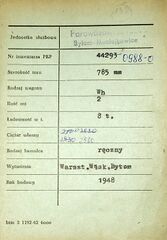 Jednostka służbowa
Parowozownia
Bytom Karb
Nr inwentarza PKP 44293 0580-0
Szerokość toru 785 mm
Rodzaj wagonu Wh
Ilość osi 2
Ładowność w t. 8 t.
Ciężar własny
Rodzaj hamulca ręczny
Wytwórnia Warszt.Wąsk.Bytom
Rok budowy 1948